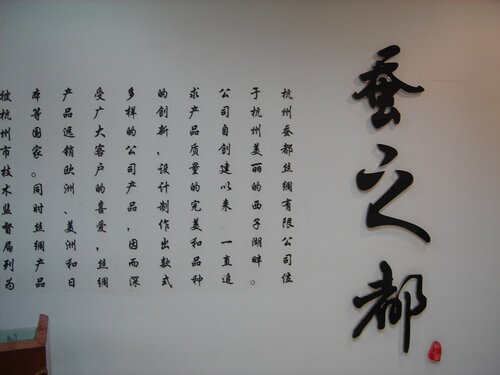 蚕之都
杭州蚕都丝绸有限公司位
于杭州美丽的西子湖畔。
公司自创建以来 一直追
求产品质量的完美和品种
的创新，设计制作出款式
多样的公司产品，因而深
受广大客户的喜爱，丝绸
产品远销欧洲、美洲和日
本等国家。同时丝绸产品
被杭州市技术监督局列为